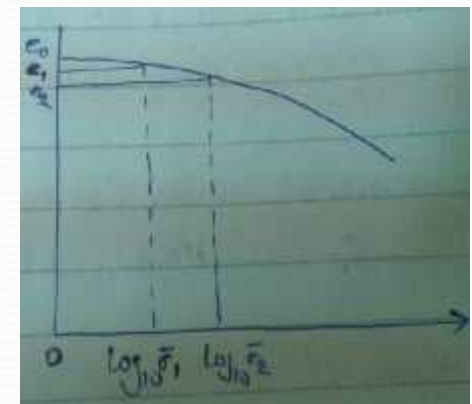 e₀
e₁
e₂
0 log₁₀ σ̄₁ log₁₀ σ̄₂